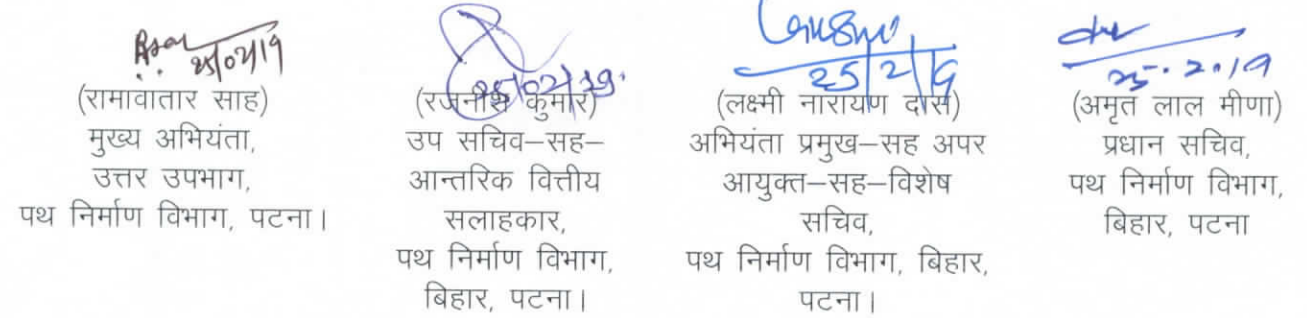 25/02/19
(रामावातार साह)
मुख्य अभियंता,
उत्तर उपभाग,
पथ निर्माण विभाग, पटना।
25/02/19.
(रजनीश कुमार)
उप सचिव–सह–
आन्तरिक वित्तीय
सलाहकार,
पथ निर्माण विभाग,
बिहार, पटना।
25/2/19
(लक्ष्मी नारायण दास)
अभियंता प्रमुख–सह अपर
आयुक्त–सह–विशेष
सचिव,
पथ निर्माण विभाग, बिहार,
पटना।
25.2.19
(अमृत लाल मीणा)
प्रधान सचिव,
पथ निर्माण विभाग,
बिहार, पटना